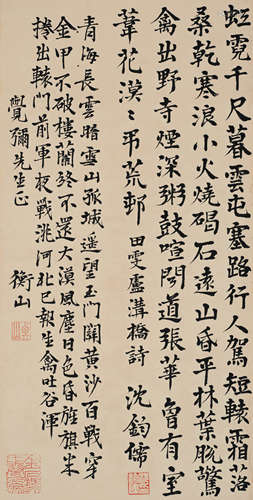 虹霓千尺暮雲屯塞路行人駕短轅霜落
桑乾寒浪小火燒碣石遠山昏平林葉脫驚
禽出野寺煙深粥鼓喧聞道張華曾有室
葦花漠〻弔荒邨 田雯盧溝橋詩 沈鈞儒
青海長雲暗雪山孤城遥望玉門關黃沙百戰穿
金甲不破樓蘭終不還大漠風塵日色昏旌旗半
捲出轅門前軍夜戰洮河北已報生禽吐谷渾
覺彌先生正 衡山